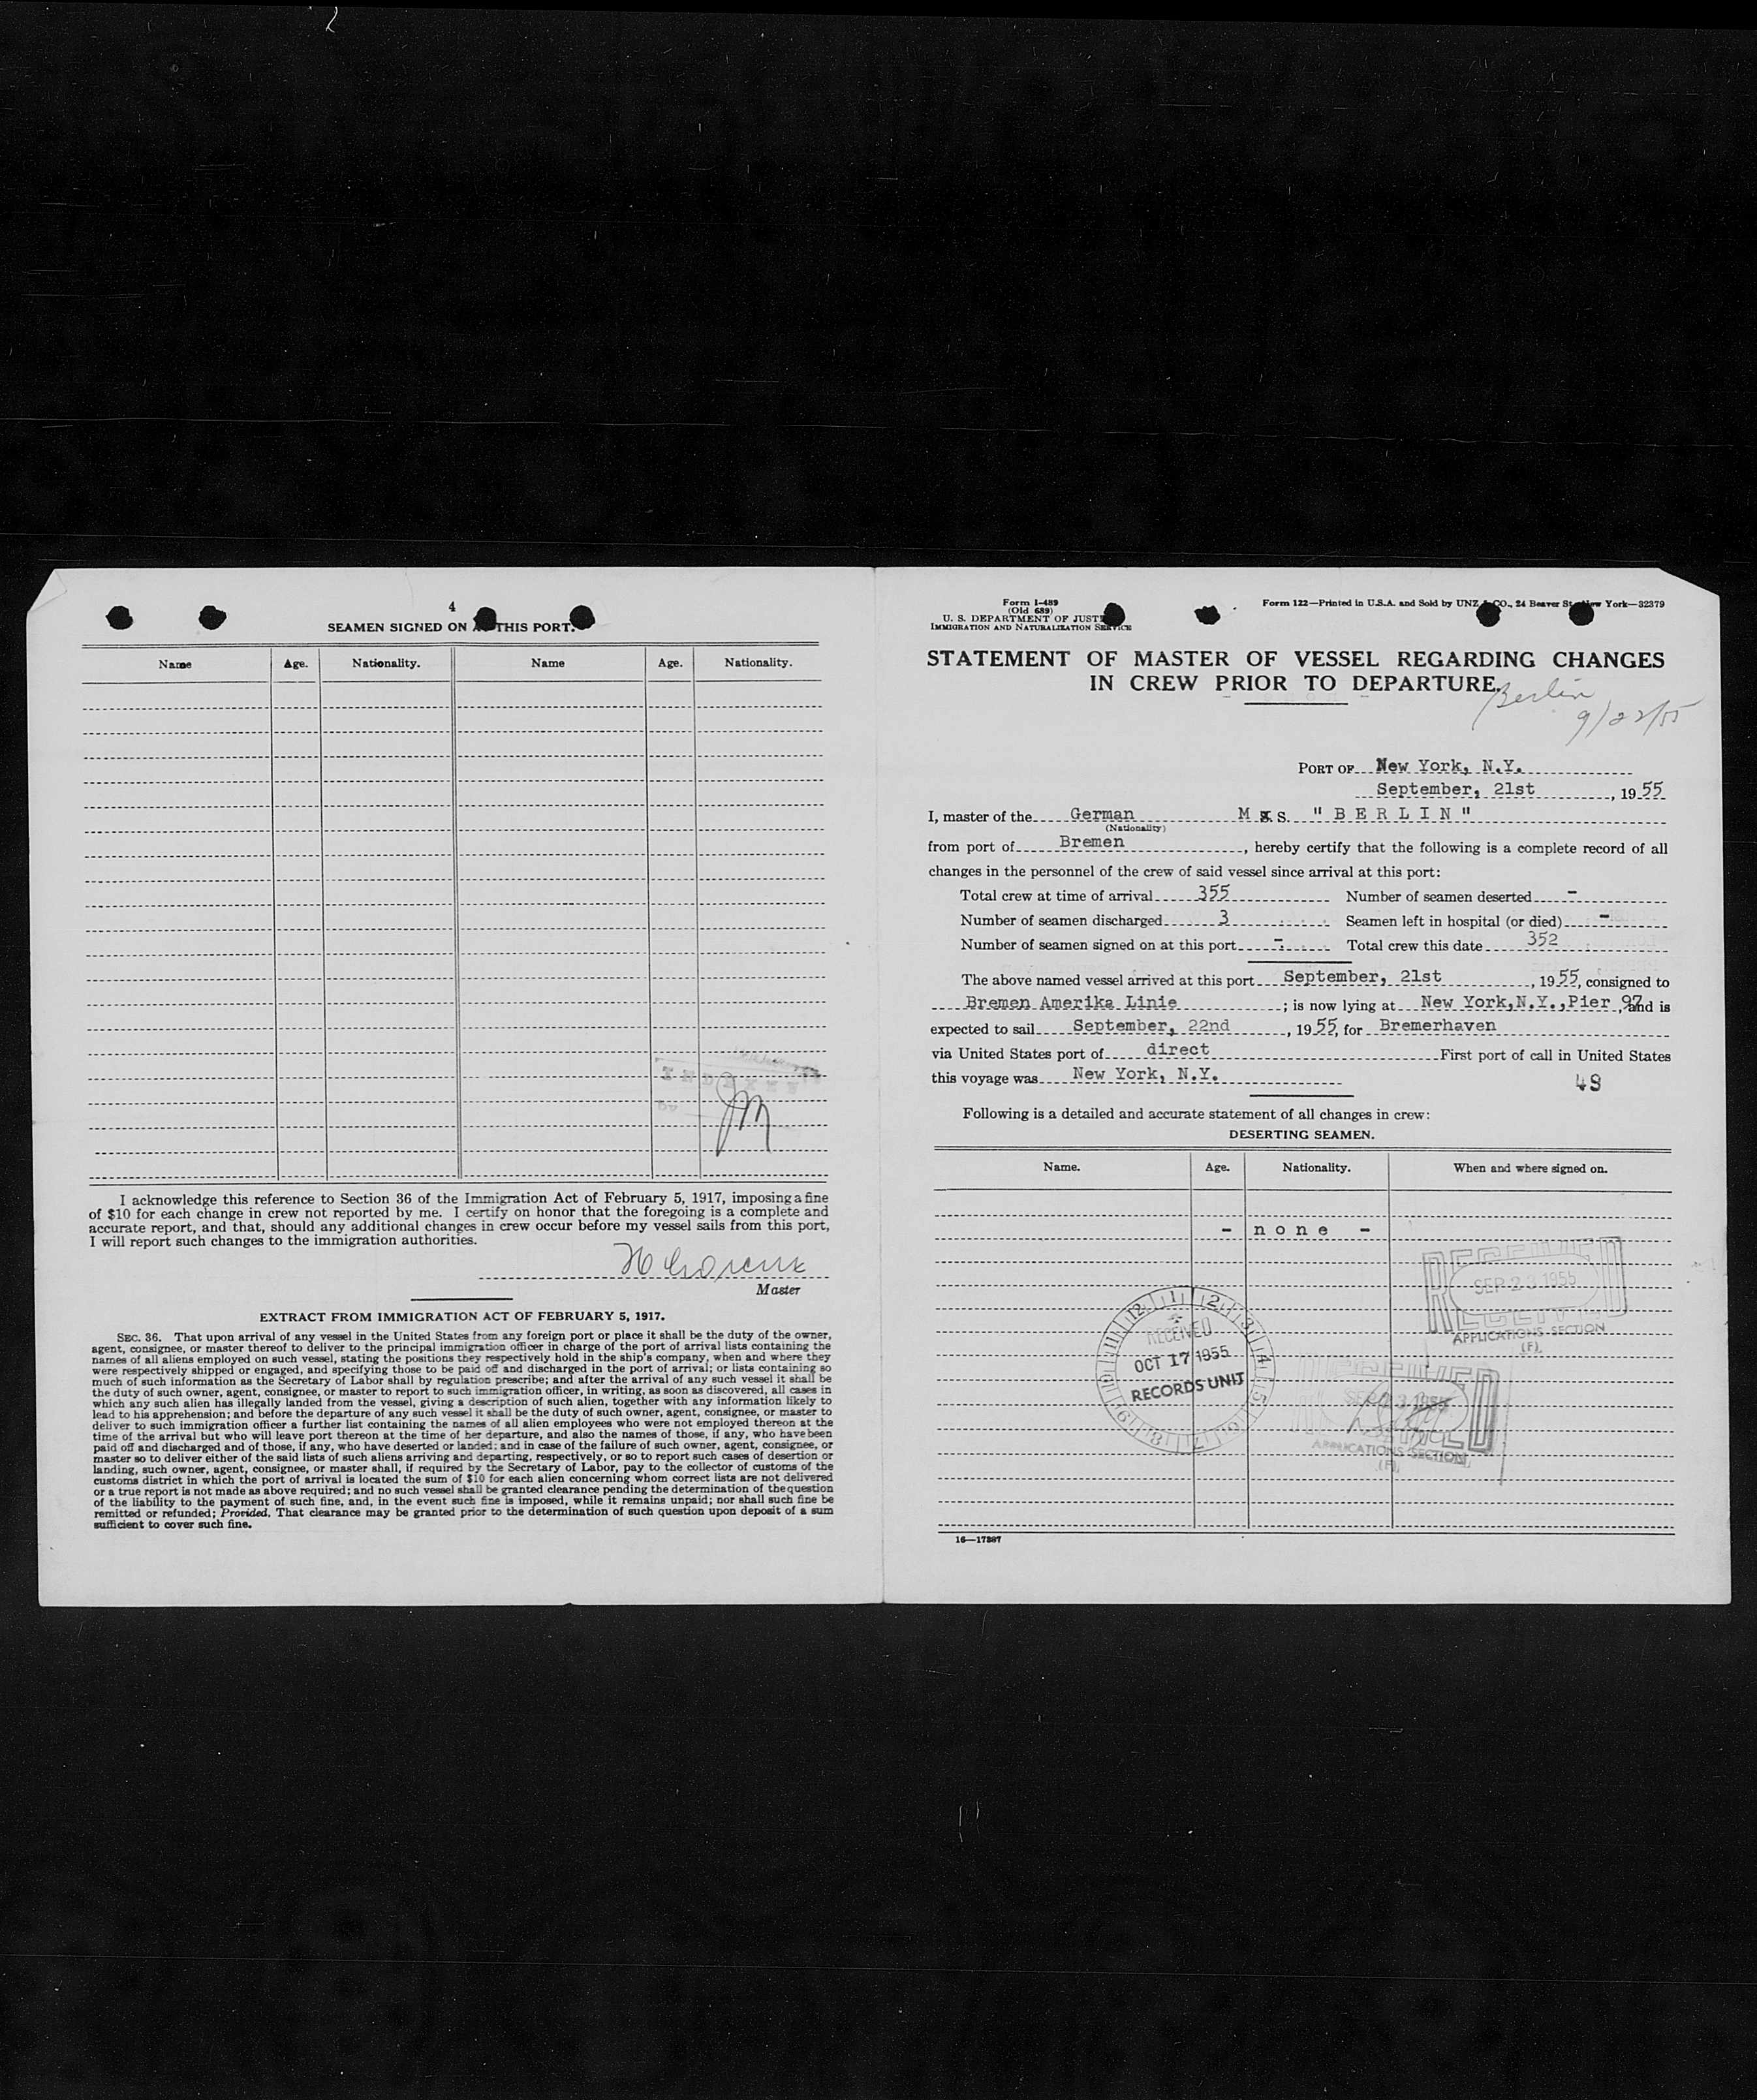 2
4
SEAMEN SIGNED ON AT THIS PORT.
Name Age. Nationality. Name Age. Nationality.
I acknowledge this reference to Section 36 of the Immigration Act of February 5, 1917, imposing a fine
of $10 for each change in crew not reported by me. I certify on honor that the foregoing is a complete and
accurate report, and that, should any additional changes in crew occur before my vessel sails from this port,
I will report such changes to the immigration authorities.
Master
EXTRACT FROM IMMIGRATION ACT OF FEBRUARY 5, 1917.
SEC. 36. That upon arrival of any vessel in the United States from any foreign port or place it shall be the duty of the owner,
agent, consignee, or master thereof to deliver to the principal immigration officer in charge of the port of arrival lists containing the
names of all aliens employed on such vessel, stating the positions they respectively hold in the ship's company, when and where they
were respectively shipped or engaged, and specifying those to be paid off and discharged in the port of arrival; or lists containing so
much of such information as the Secretary of Labor shall by regulation prescribe; and after the arrival of any such vessel it shall be
the duty of such owner, agent, consignee, or master to report to such immigration officer, in writing, as soon as discovered, all cases in
which any such alien has illegally landed from the vessel, giving a description of such alien, together with any information likely to
lead to his apprehension; and before the departure of any such vessel it shall be the duty of such owner, agent, consignee, or master to
deliver to such immigration officer a further list containing the names of all alien employees who were not employed thereon at the
time of the arrival but who will leave port thereon at the time of her departure, and also the names of those, if any, who have been
paid off and discharged and of those, if any, who have deserted or landed; and in case of the failure of such owner, agent, consignee, or
master so to deliver either of the said lists of such aliens arriving and departing, respectively, or so to report such cases of desertion or
landing, such owner, agent, consignee, or master shall, if required by the Secretary of Labor, pay to the collector of customs of the
customs district in which the port of arrival is located the sum of $10 for each alien concerning whom correct lists are not delivered
or a true report is not made as above required; and no such vessel shall be granted clearance pending the determination of the question
of the liability to the payment of such fine, and, in the event such fine is imposed, while it remains unpaid; nor shall such fine be
remitted or refunded; Provided, That clearance may be granted prior to the determination of such question upon deposit of a sum
sufficient to cover such fine.
Form I-489
(Old 689)
U. S. DEPARTMENT OF JUSTICE
IMMIGRATION AND NATURALIZATION SERVICE
Form 122—Printed in U.S.A. and Sold by UNZ & CO., 24 Beaver St., New York—32379
STATEMENT OF MASTER OF VESSEL REGARDING CHANGES
IN CREW PRIOR TO DEPARTURE.
Berlin
9/22/55
PORT OF New York, N.Y.
September, 21st, 1955
I, master of the German M.S. "BERLIN"
(Nationality)
from port of Bremen, hereby certify that the following is a complete record of all
changes in the personnel of the crew of said vessel since arrival at this port:
Total crew at time of arrival 355 Number of seamen deserted -
Number of seamen discharged 3 Seamen left in hospital (or died) -
Number of seamen signed on at this port - Total crew this date 352
The above named vessel arrived at this port September, 21st, 1955, consigned to
Bremen Amerika Linie; is now lying at New York,N.Y.,Pier 97, and is
expected to sail September, 22nd, 1955, for Bremerhaven
via United States port of direct First port of call in United States
this voyage was New York, N.Y.
48
Following is a detailed and accurate statement of all changes in crew:
DESERTING SEAMEN.
Name. Age. Nationality. When and where signed on.
- none -
RECEIVED
SEP 23 1955
APPLICATIONS SECTION
(F).
RECEIVED
OCT 17 1955
RECORDS UNIT
APPLICATIONS SECTION
(F).
16—17387